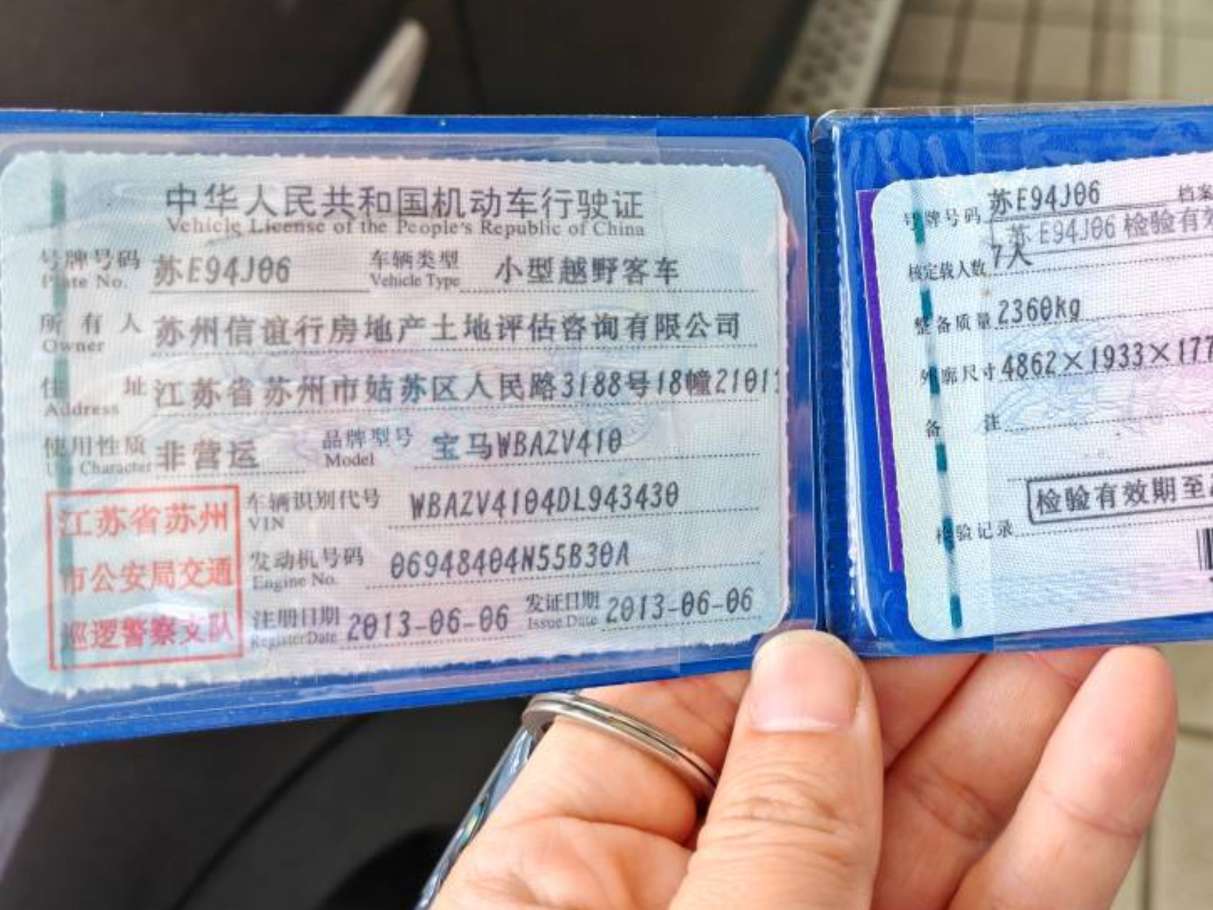 中华人民共和国机动车行驶证
Vehicle License of the People's Republic of China
号牌号码 苏E94J06 车辆类型 小型越野客车
Plate No. Vehicle Type
所有人 苏州信谊行房地产土地评估咨询有限公司
Owner
住址 江苏省苏州市姑苏区人民路3188号18幢2101
Address
使用性质 非营运 品牌型号 宝马WBAZV410
Use Character Model
江苏省苏州
市公安局交通
巡逻警察支队
车辆识别代号 WBAZV4104DL943430
VIN
发动机号码 06948404N55B30A
Engine No.
注册日期 2013-06-06 发证日期 2013-06-06
Register Date Issue Date
号牌号码 苏E94J06 档案
苏E94J06 检验有效
核定载人数 7人
整备质量 2360kg
外廓尺寸 4862×1933×177
备注
检验有效期至
检验记录